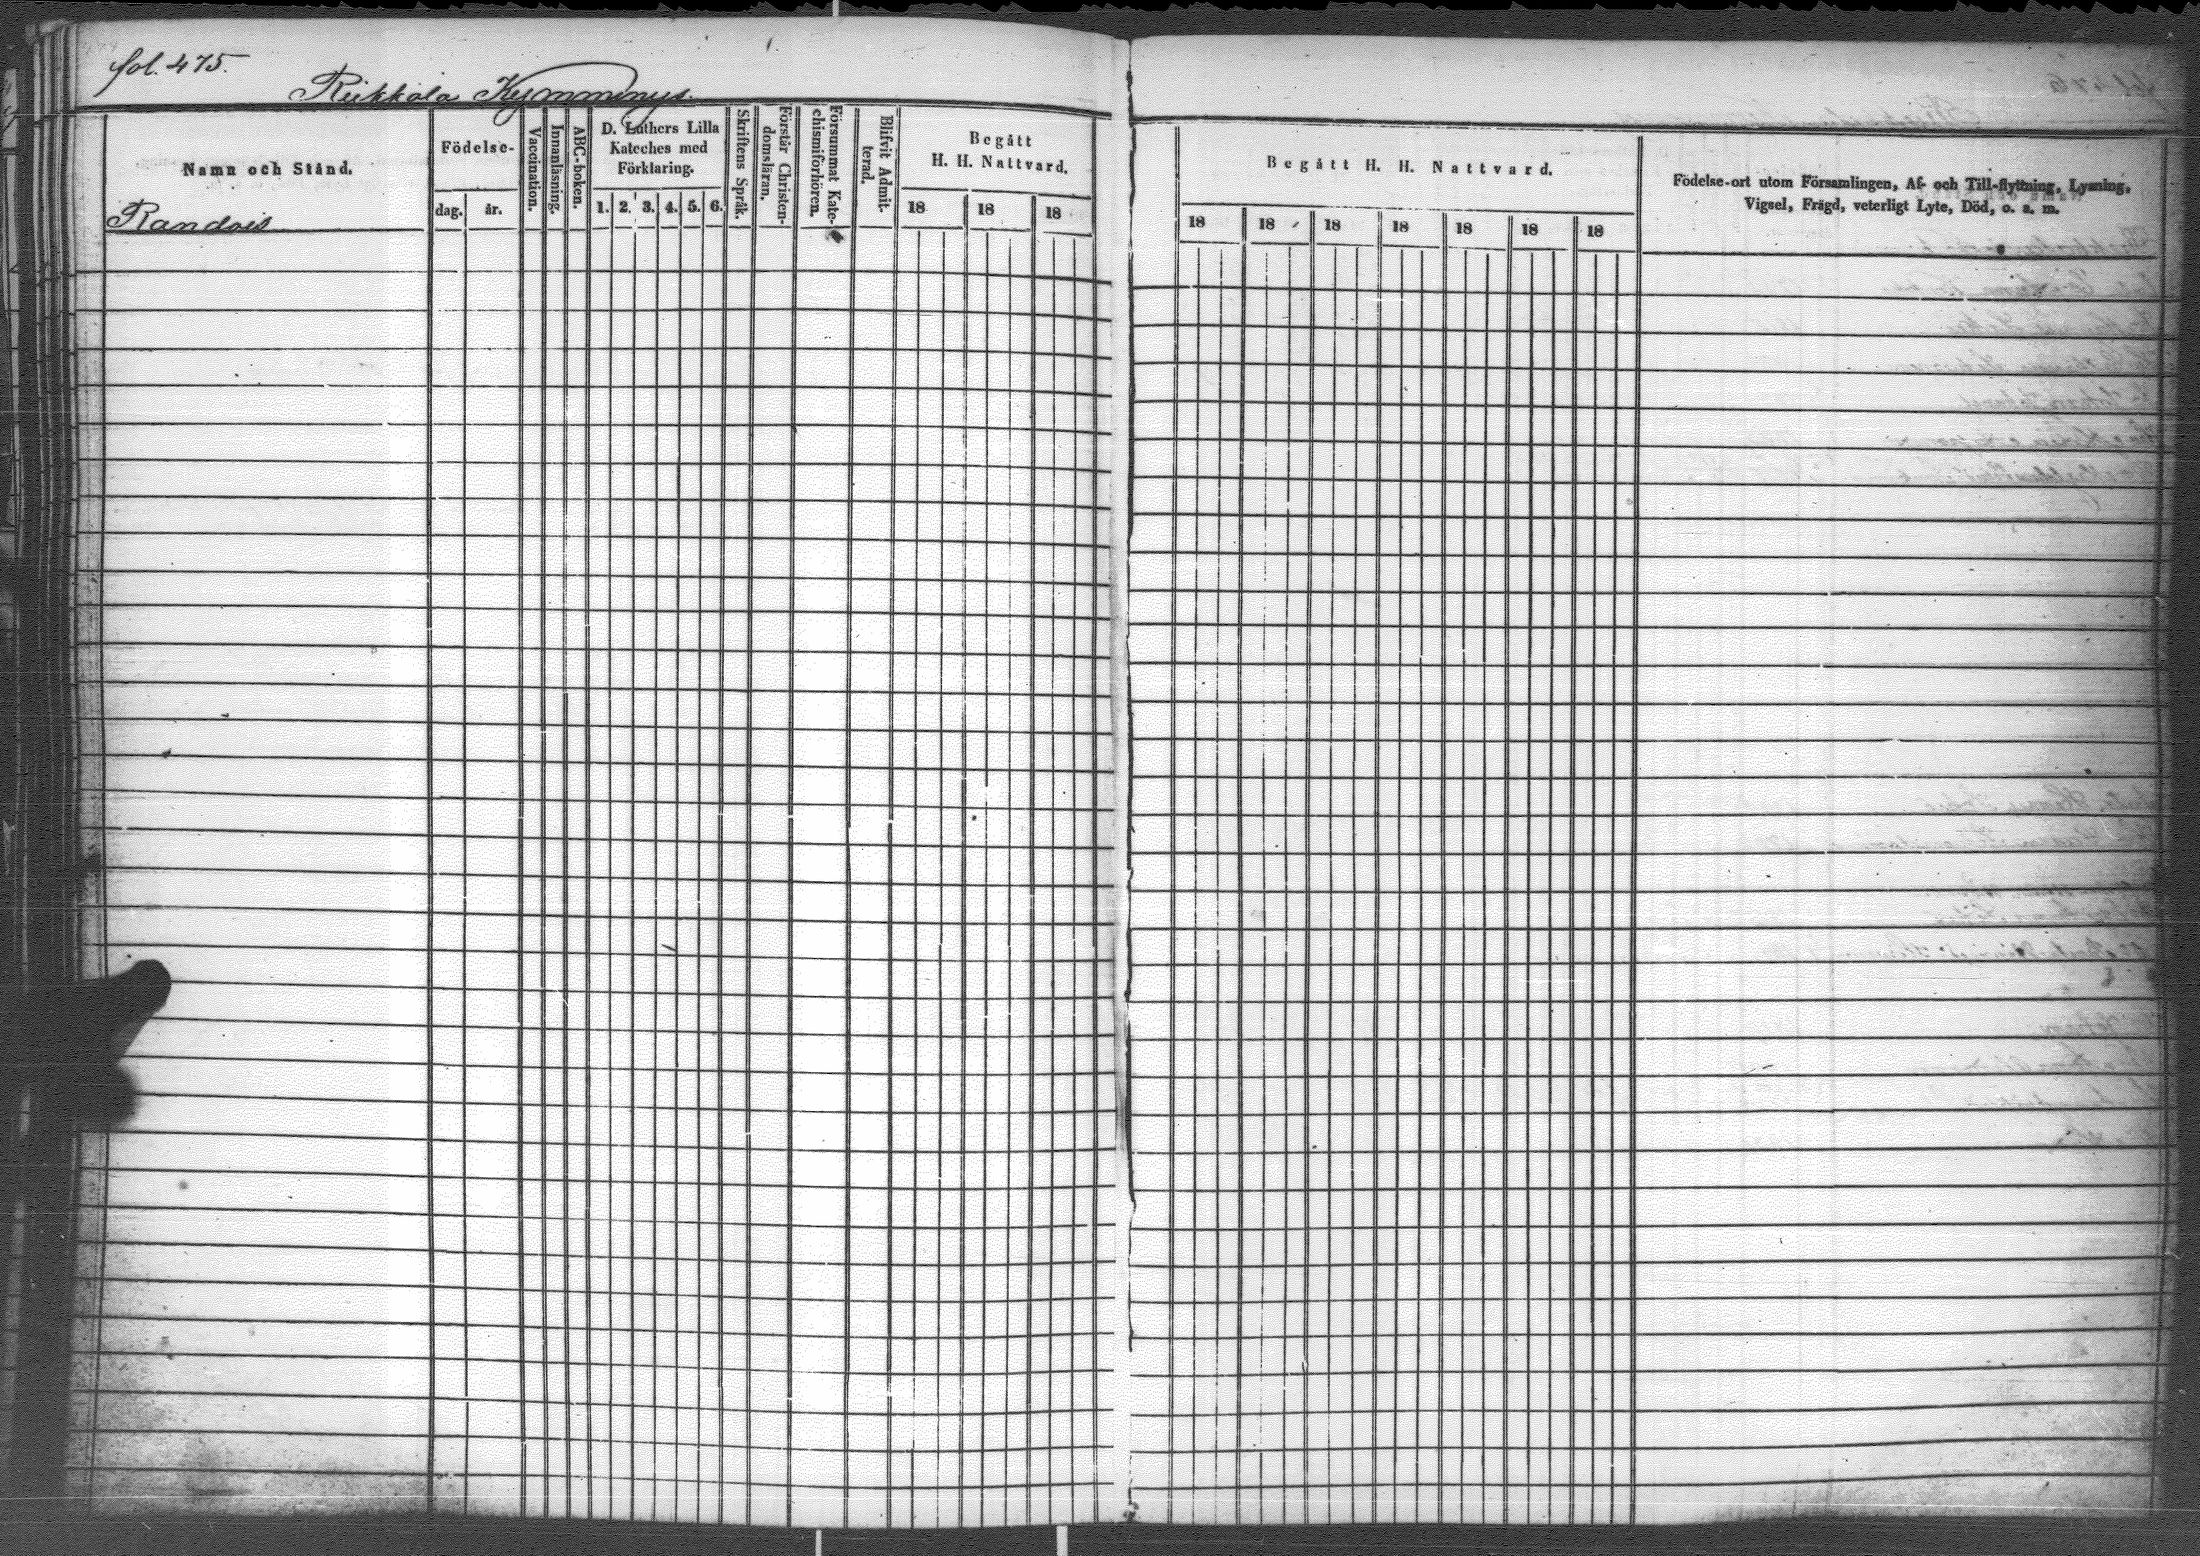 fol. 475.
Reikkala Kymminys.
Namn och Stånd.
Födelse-
dag.
år.
Vaccination.
Innanläsning.
ABC-boken.
D. Luthers Lilla
Kateches med
Förklaring.
1. 2. 3. 4. 5. 6.
Skriftens Språk.
Förstår Christen-
domsläran.
Försummat Kate-
chismiförhören.
Blifvit Admit-
terad.
Begått
H. H. Nattvard.
18 18 18
Begått H. H. Nattvard.
18 18 18 18 18 18 18
Födelse-ort utom Församlingen, Af- och Till-flyttning, Lysning,
Vigsel, Frägd, veterligt Lyte, Död, o. s. m.